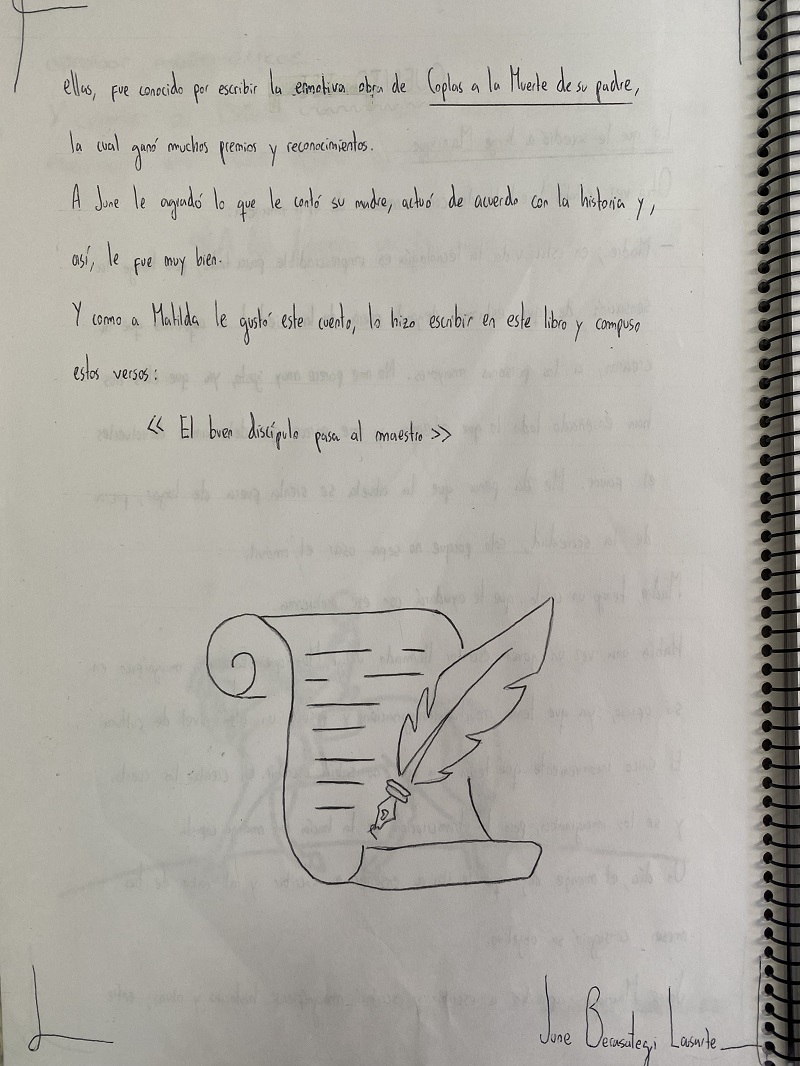 ellas, fue conocido por escribir la emotiva obra de Coplas a la Muerte de su padre,
la cual ganó muchos premios y reconocimientos.
A June le agradó lo que le contó su madre, actuó de acuerdo con la historia y,
así, le fue muy bien.
Y como a Matilda le gustó este cuento, lo hizo escribir en este libro y compuso
estos versos:
<< El buen discípulo pasa al maestro >>
June Becasategi Lasarte